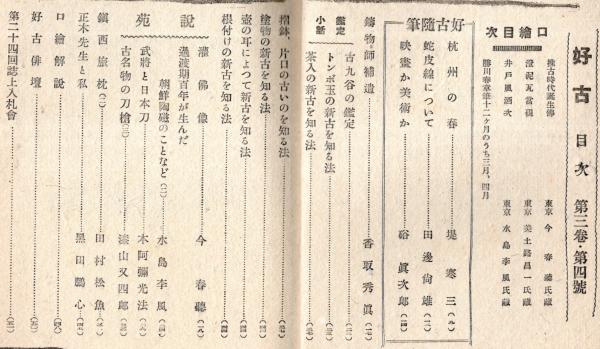 好古 目次 第三卷・第四號
口繪目次
推古時代誕生佛 東京 今春聽氏藏
澄泥瓦當硯 東京 美土路昌一氏藏
井戸風酒次 東京 水島李風氏藏
勝川春章筆十二ヶ月のうち三月、四月
好古隨筆
杭州の春 堤寒三
蛇皮線について 田邊尚雄
映畫か美術か 裕眞次郎
鑄物師補遺 香取秀眞
鑑定小話
古九谷の鑑定
トンボ玉の新古を知る法
茶入の新古を知る法
擂鉢、片口の古いのを知る法
塗物の新古を知る法
壺の耳によつて新古を知る法
根付けの新古を知る法
說苑
灌佛像 今春聽
過渡期百年が生んだ朝鮮陶磁のことなど(二) 水島李風
武將と日本刀 本阿彌光法
古名物の刀槍(三) 漆山又四郎
鎭西旅枕(二) 田村松魚
正木先生と私 黑田鵬心
口繪解說
好古俳壇
第二十四回誌上入札會